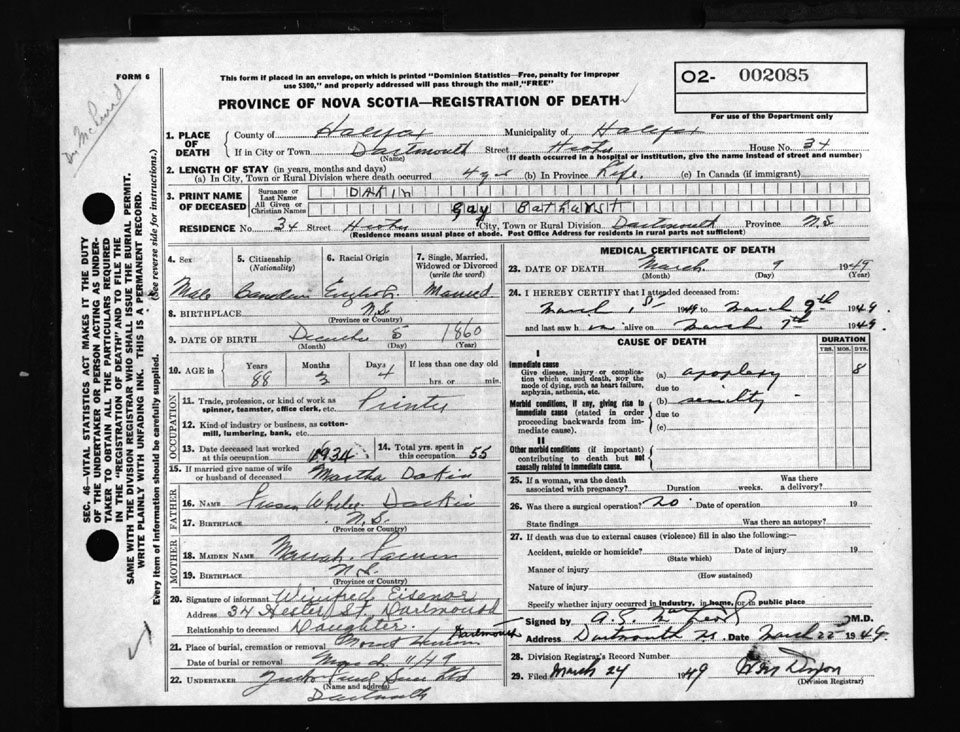 FORM 6
This form if placed in an envelope, on which is printed "Dominion Statistics—Free, penalty for improper
use $300," and properly addressed will pass through the mail, "FREE"
PROVINCE OF NOVA SCOTIA—REGISTRATION OF DEATH
02- 002085
For use of the Department only
SEC. 46—VITAL STATISTICS ACT MAKES IT THE DUTY
OF THE UNDERTAKER OR PERSON ACTING AS UNDER-
TAKER TO OBTAIN ALL THE PARTICULARS REQUIRED
IN THE "REGISTRATION OF DEATH" AND TO FILE THE
SAME WITH THE DIVISION REGISTRAR WHO SHALL ISSUE THE BURIAL PERMIT.
WRITE PLAINLY WITH UNFADING INK. THIS IS A PERMANENT RECORD.
Every item of information should be carefully supplied. (See reverse side for instructions.)
1. PLACE OF DEATH County of Halifax Municipality of Halifax
If in City or Town Dartmouth Street House No. 34
(Name) (If death occurred in a hospital or institution, give the name instead of street and number)
2. LENGTH OF STAY (in years, months and days)
(a) In City, Town or Rural Division where death occurred 4 yrs (b) In Province Life. (c) In Canada (if immigrant)
3. PRINT NAME OF DECEASED Surname or Last Name DAKIN
All Given or Christian Names Gay Bathurst
RESIDENCE No. 34 Street City, Town or Rural Division Dartmouth Province N.S
(Residence means usual place of abode. Post Office Address for residents in rural parts not sufficient)
4. Sex 5. Citizenship (Nationality) 6. Racial Origin 7. Single, Married, Widowed or Divorced (write the word)
Male Canadian English Married
8. BIRTHPLACE N.S
(Province or Country)
9. DATE OF BIRTH December 5 1860
(Month) (Day) (Year)
10. AGE in Years 88 Months 3 Days 4 If less than one day old hrs. or min.
OCCUPATION
11. Trade, profession, or kind of work as
spinner, teamster, office clerk, etc. Printer
12. Kind of industry or business, as cotton-
mill, lumbering, bank, etc.
13. Date deceased last worked at this occupation 1934 14. Total yrs. spent in this occupation 55
15. If married give name of wife
or husband of deceased Martha Dakin
FATHER
16. NAME Dakin
17. BIRTHPLACE N.S.
(Province or Country)
MOTHER
18. MAIDEN NAME
19. BIRTHPLACE N.S.
(Province or Country)
20. Signature of informant Winifred Eisenor
Address 34 St. Dartmouth
Relationship to deceased Daughter.
21. Place of burial, cremation or removal Mount Dartmouth
Date of burial or removal March 11/49
22. UNDERTAKER Sons Ltd
(Name and address)
Dartmouth
MEDICAL CERTIFICATE OF DEATH
23. DATE OF DEATH March 9 1949
(Month) (Day) (Year)
24. I HEREBY CERTIFY that I attended deceased from:
March 1st 1949 to March 9th 1949
and last saw him alive on March 7th 1949.
CAUSE OF DEATH DURATION
YRS. MOS. DYS.
I
Immediate cause
Give disease, injury or complica-
tion which caused death, NOT the
mode of dying, such as heart failure,
asphyxia, asthenia, etc.
(a) apoplexy 8
due to
Morbid conditions, if any, giving rise to
immediate cause (stated in order
proceeding backwards from im-
mediate cause).
(b) senility
due to
(c)
II
Other morbid conditions (if important)
contributing to death but not
causally related to immediate cause.
25. If a woman, was the death
associated with pregnancy? Duration weeks. Was there a delivery?
26. Was there a surgical operation? no Date of operation 19
State findings Was there an autopsy?
27. If death was due to external causes (violence) fill in also the following:
Accident, suicide or homicide? Date of injury 19
(State which)
Manner of injury
(How sustained)
Nature of injury
Specify whether injury occurred in industry, in home, or in public place
Signed by M.D.
Address Dartmouth Date March 22 1949
28. Division Registrar's Record Number
29. Filed March 24 1949 Dixon
(Division Registrar)